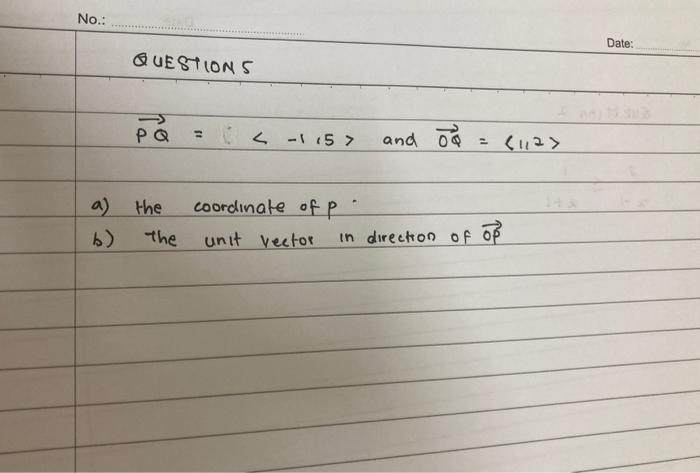 No.:
Date:
QUESTION 5
PQ = < -1,5 > and OQ = <1,2>
a) the coordinate of p.
b) The unit vector in direction of OP